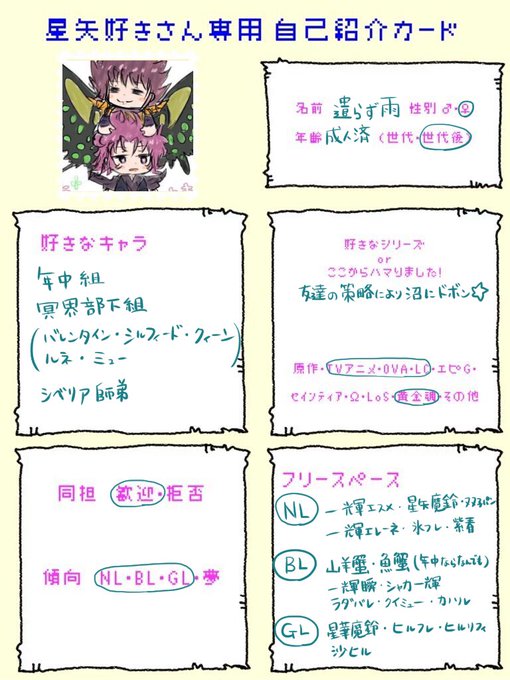 星矢好きさん専用 自己紹介カード
名前 遣らず雨 性別 ♂・♀
年齢 成人済 (世代・世代後)
好きなキャラ
年中組
冥界部下組
(バレンタイン・シルフィード・クィーン
ルネ・ミュー)
シベリア師弟
好きなシリーズ
or
ここからハマりました!
友達の策略により沼にドボン☆
原作・TVアニメ・OVA・LC・エピG・
セインティア・Ω・LoS・黄金魂・その他
同担 歓迎・拒否
傾向 NL・BL・GL・夢
フリースペース
NL
一輝エスメ・星矢魔鈴・
一輝エレーネ・氷フレ・紫春
BL
山羊蟹・魚蟹(年中ならなんでも)
一輝瞬・シャカ一輝
ラダバレ・クイミュー・カノソル
GL
星華魔鈴・ヒルフレ・ヒルリフィ
沙ヒル